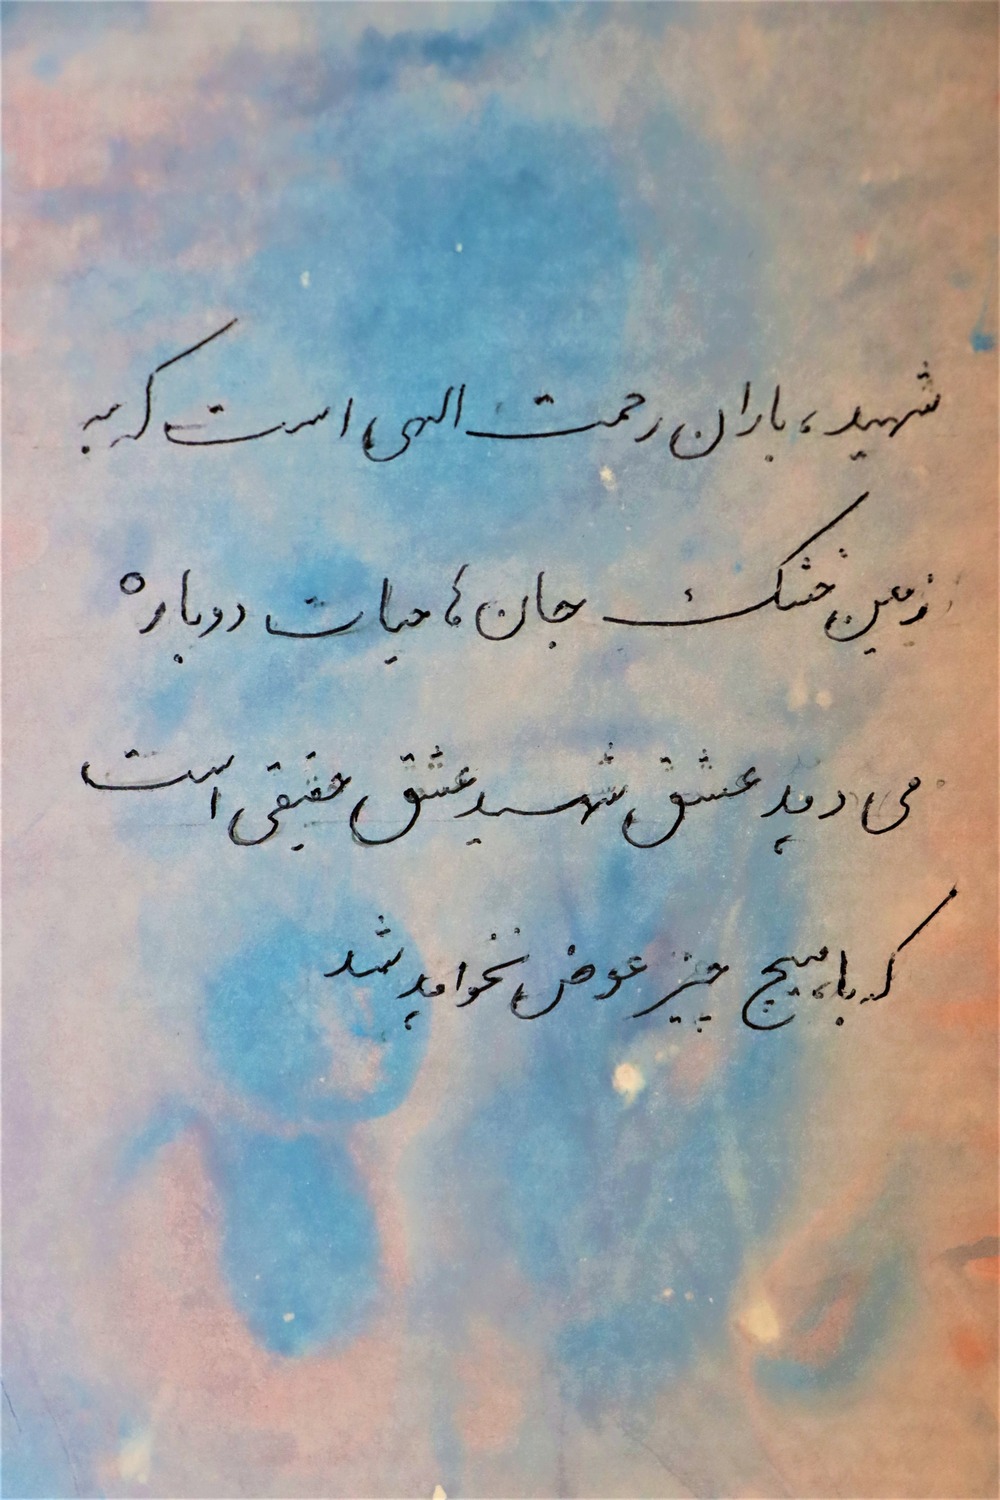 شهید، باران رحمت الهی است که به
زمین خشک جان ها حیات دوباره
می دهد عشق شهید عشق حقیقی است
که با هیچ چیز عوض نخواهد شد